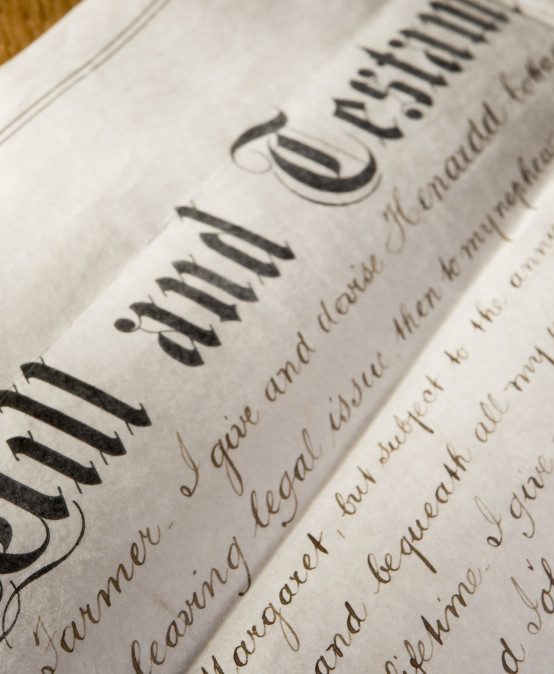 Will and Testam
Farmer. I give and devise
leaving legal issue then to my nephew
Margaret, but subject to the annu
and bequeath all my
lifetime. I give
d